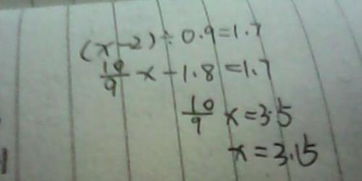 (x-2)÷0.9=1.7
10/9 x-1.8=1.7
10/9 x=3.5
x=3.15